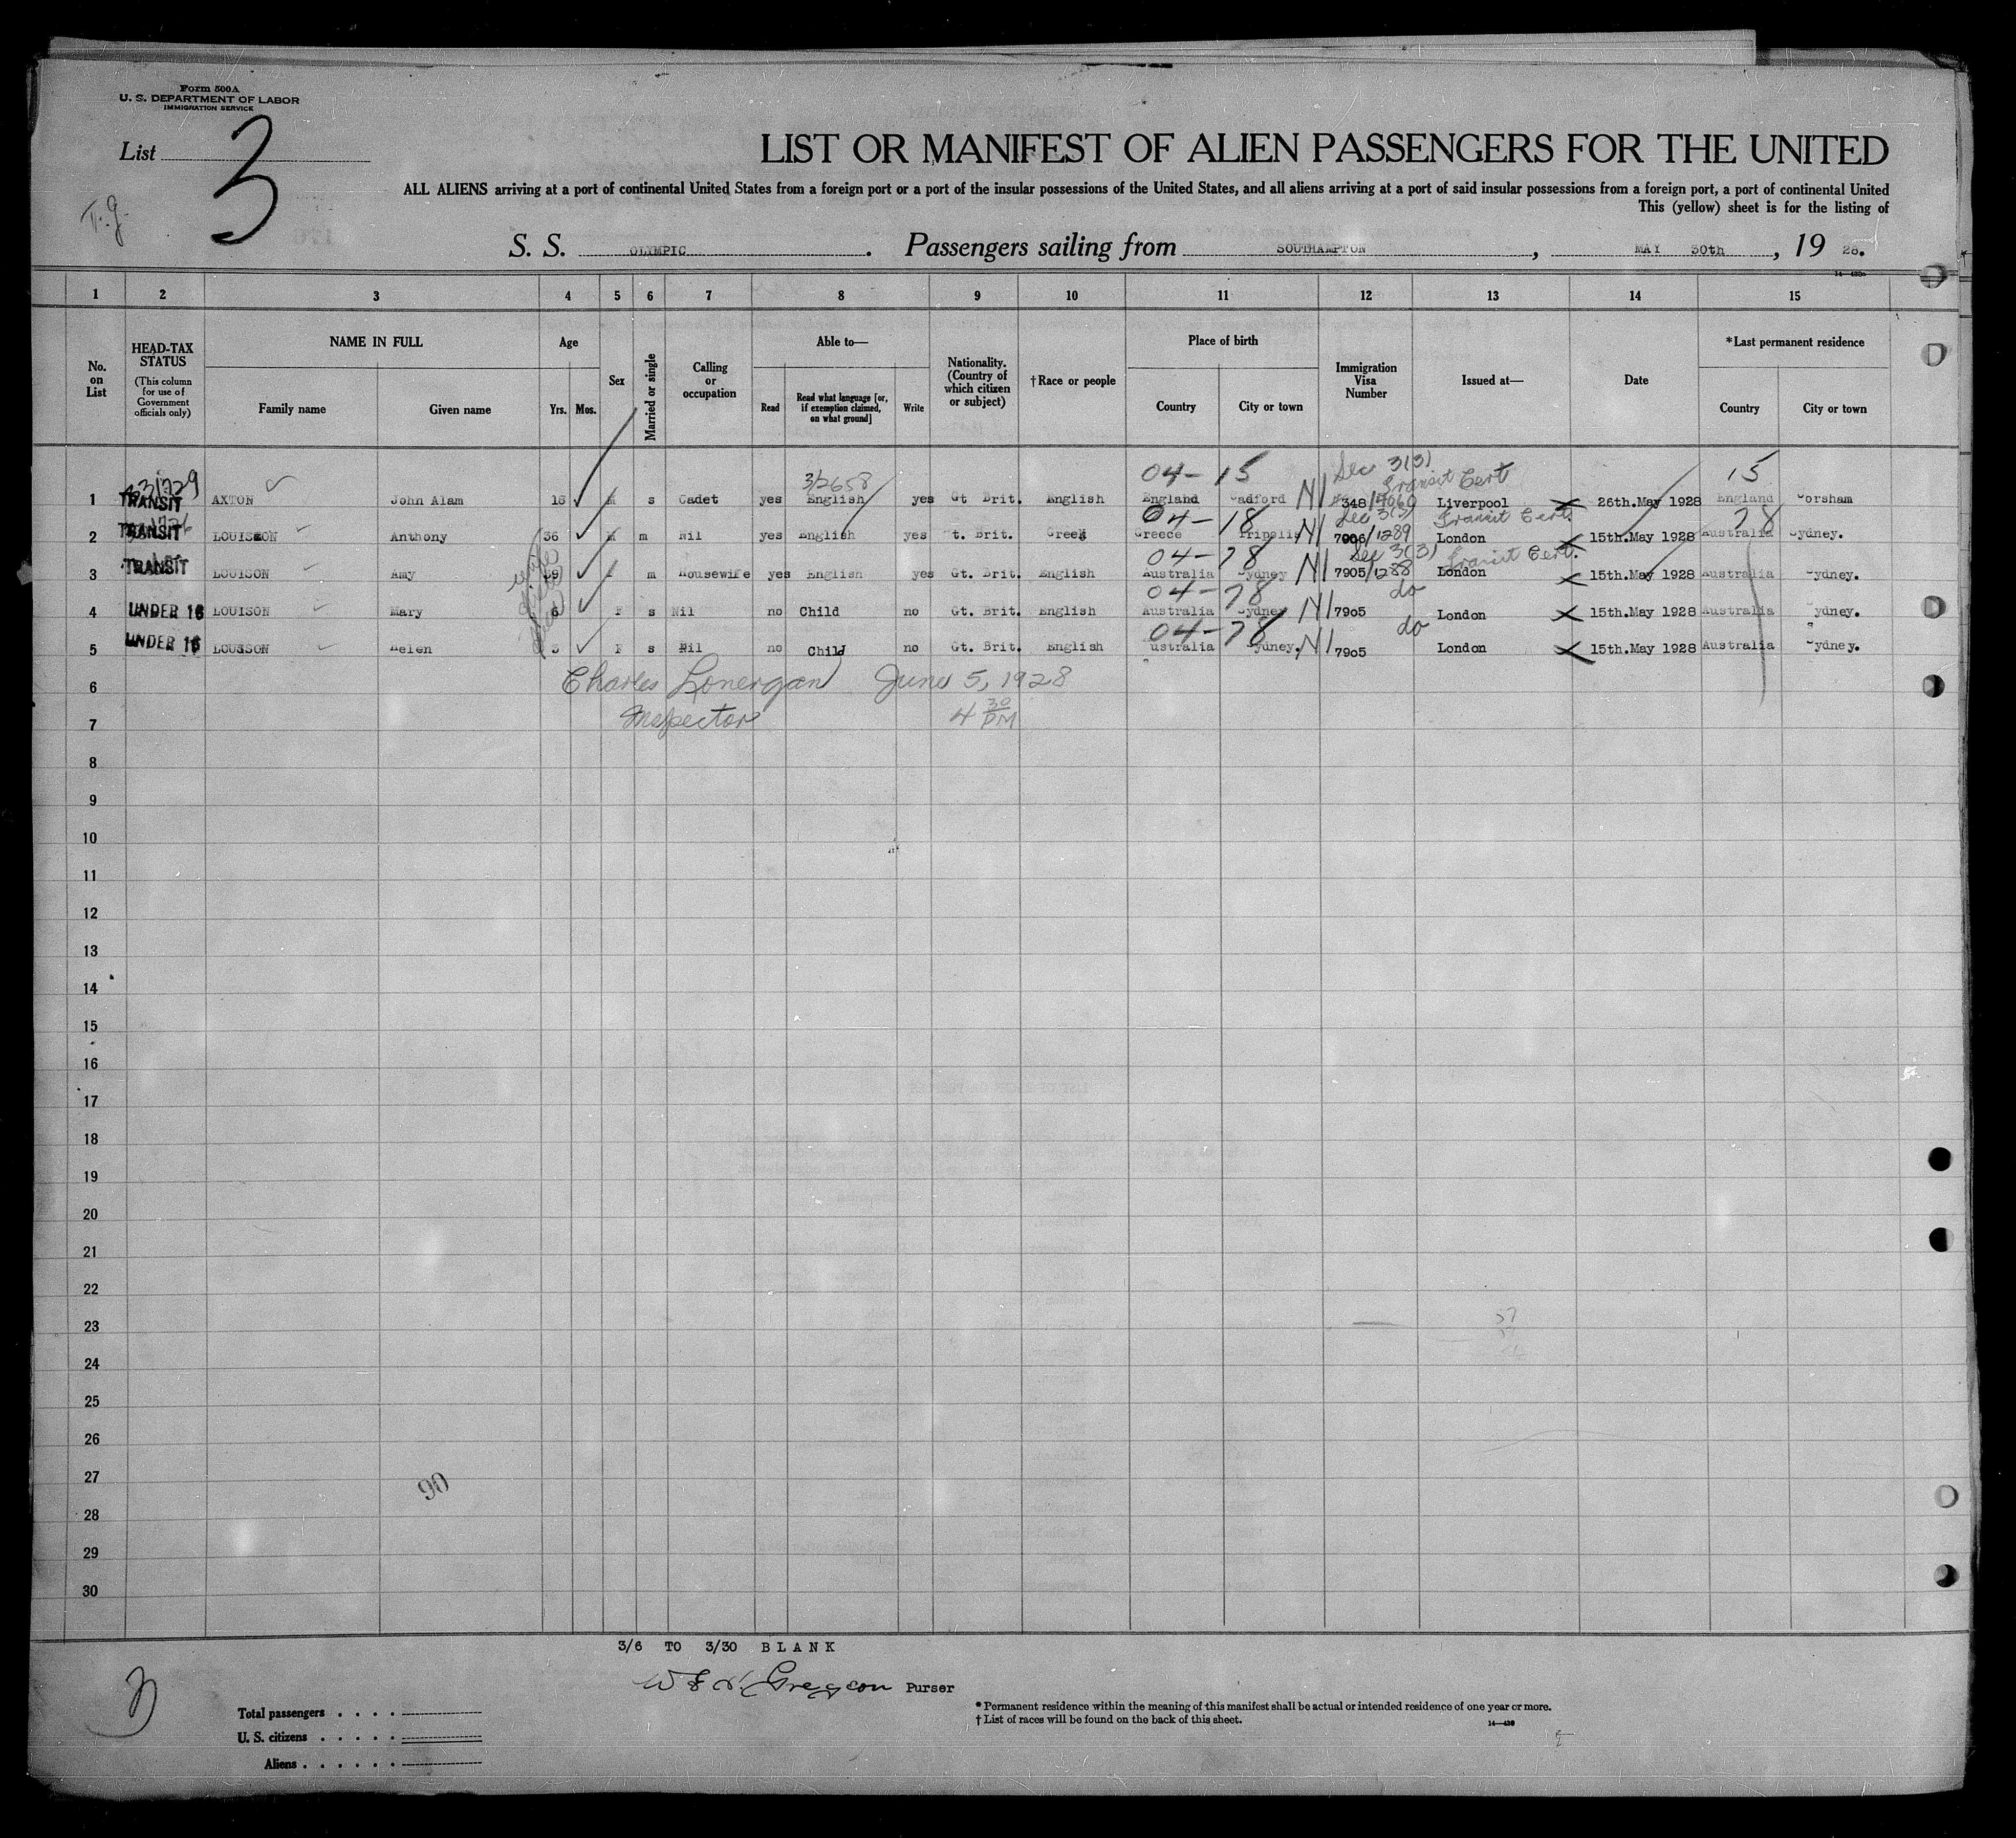 Form 500A
U. S. DEPARTMENT OF LABOR
IMMIGRATION SERVICE
List 3
T.g.
LIST OR MANIFEST OF ALIEN PASSENGERS FOR THE UNITED
ALL ALIENS arriving at a port of continental United States from a foreign port or a port of the insular possessions of the United States, and all aliens arriving at a port of said insular possessions from a foreign port, a port of continental United
This (yellow) sheet is for the listing of
S. S. OLYMPIC. Passengers sailing from SOUTHAMPTON, MAY 30th, 19 28.
1 2 3 4 5 6 7 8 9 10 11 12 13 14 15
No. on List
HEAD-TAX STATUS (This column for use of Government officials only)
NAME IN FULL Family name Given name
Age Yrs. Mos.
Sex
Married or single
Calling or occupation
Able to— Read Read what language [or, if exemption claimed, on what ground] Write
Nationality. (Country of which citizen or subject)
†Race or people
Place of birth Country City or town
Immigration Visa Number
Issued at—
Date
*Last permanent residence Country City or town
3/2658 04-15 Sec 3(3) Transit Cert 15
1 TRANSIT AXTON John Alam 16 M s Cadet yes English yes Gt Brit. English England adford N1 348/4060 Liverpool 26th.May 1928 England orsham
04-18 Sec 3(3) Transit Cert. 78
2 TRANSIT LOUISON Anthony 36 M m Nil yes English yes t. Brit. Greek Greece Tripolis N1 7906/1289 London 15th.May 1928 Australia ydney.
04-78 Sec 3(3) Transit Cert.
3 TRANSIT LOUISON Amy 9 m Housewife yes English yes Gt. Brit. English Australia ydney N1 7905/1288 London 15th.May 1928 Australia ydney.
04-78 do
4 UNDER 16 LOUISON Mary 6 F s Nil no Child no Gt. Brit. English Australia ydney N1 7905 London 15th.May 1928 Australia ydney.
04-78 do
5 UNDER 16 LOUISON Helen 3 F s Nil no Child no Gt. Brit. English ustralia ydney. N1 7905 London 15th.May 1928 Australia ydney.
6 Charles Lonergan June 5, 1928
7 Inspector 4 30 PM
8
9
10
11
12
13
14
15
16
17
18
19
20
21
22
23
24
25
26
27 90
28
29
30
3/6 TO 3/30 BLANK
Purser
Total passengers
U. S. citizens
Aliens
* Permanent residence within the meaning of this manifest shall be actual or intended residence of one year or more.
† List of races will be found on the back of this sheet.